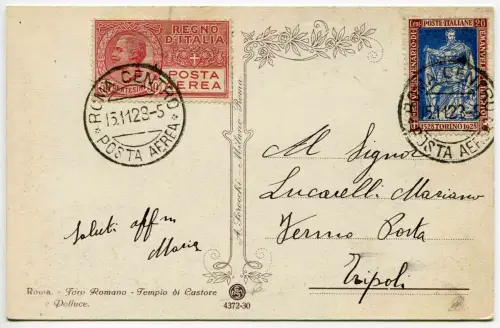 REGNO
D'ITALIA
POSTA
AEREA
ROMA CENTRO
15.11 28-5
* POSTA AEREA *
POSTE ITALIANE 20
ROMA CENTRO
POSTA AEREA
1528 TORINO 1928
A. Traldi - Milano
Al Signor
Lucarelli Mariano
Fermo Posta
Tripoli
Saluti aff.mi
Maria
Roma - Foro Romano - Tempio di Castore
e Polluce.
4372-30